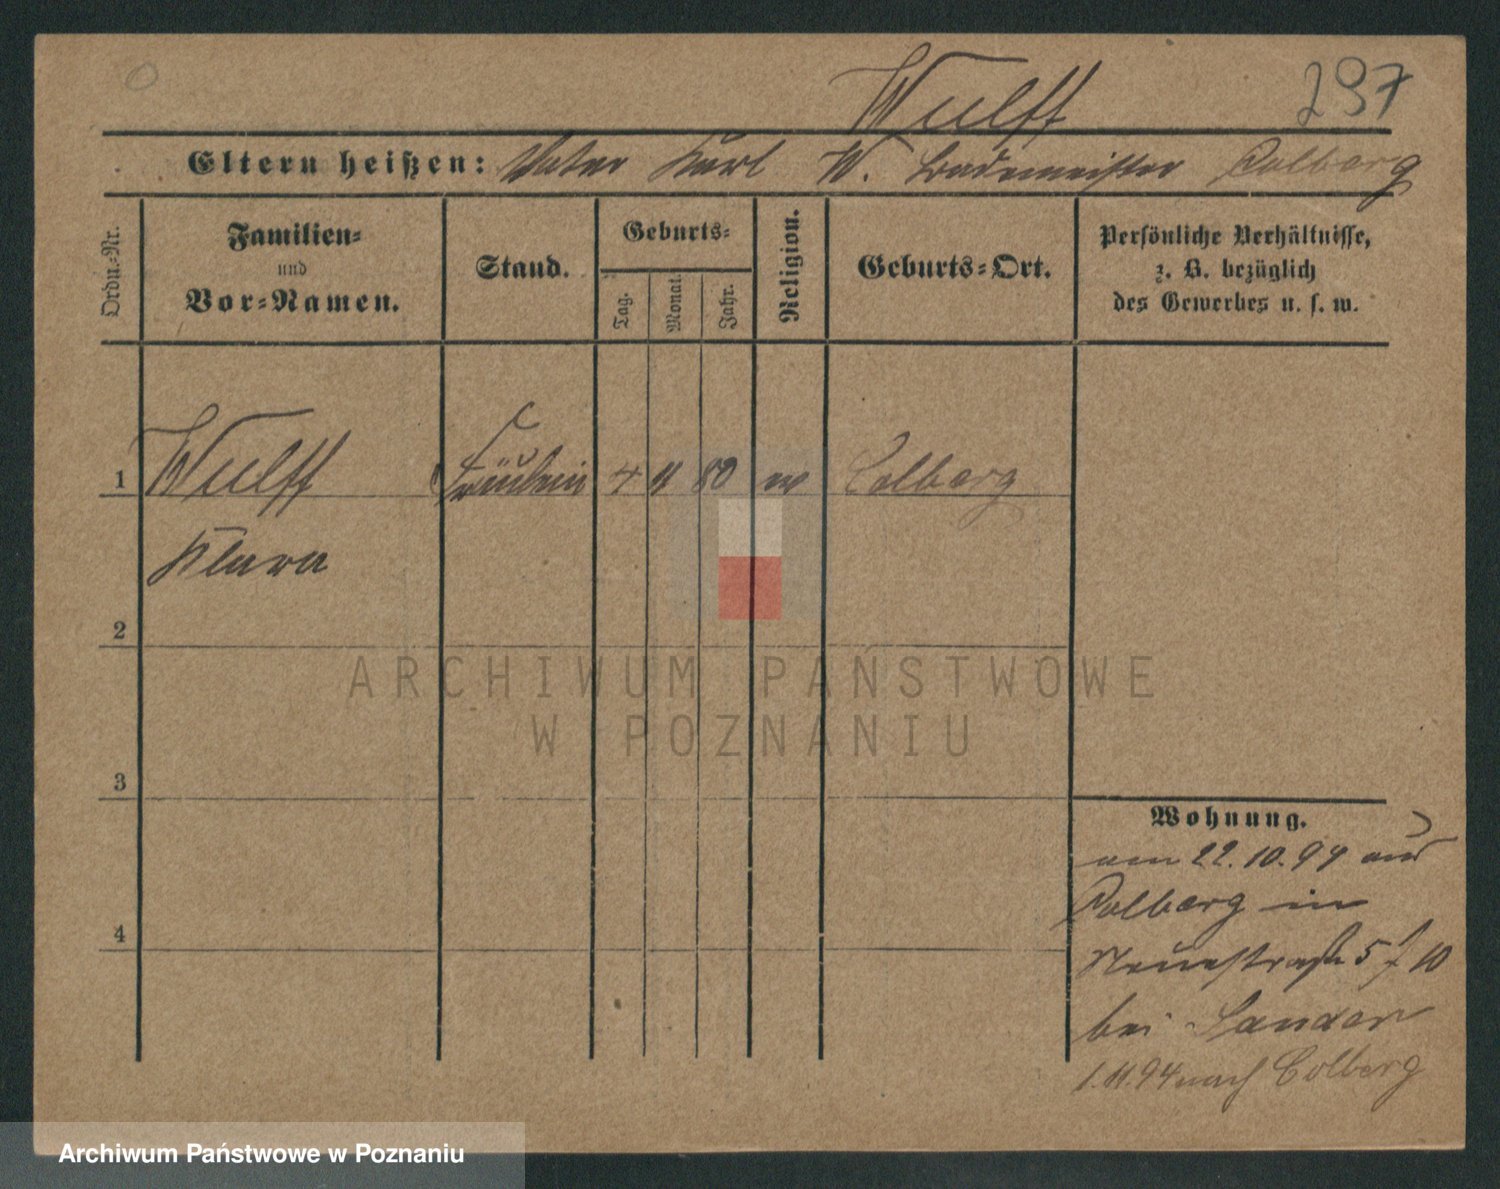 Wulff
297
Eltern heißen: Vater Karl W. Bademeister Colberg
Ordn.-Nr.
Familien-
und
Vor-Namen.
Stand.
Geburts-
Tag.
Monat.
Jahr.
Religion.
Geburts-Ort.
Persönliche Verhältnisse,
z. B. bezüglich
des Gewerbes u. s. w.
1 Wulff Fräulein 4 11 80 ev Colberg
Klara
2
3
4
Wohnung.
am 22.10.94 aus
Colberg in
Neuestraße 5 / 10
bei Sander
1.11.94 nach Colberg
ARCHIWUM PAŃSTWOWE
W POZNANIU
Archiwum Państwowe w Poznaniu